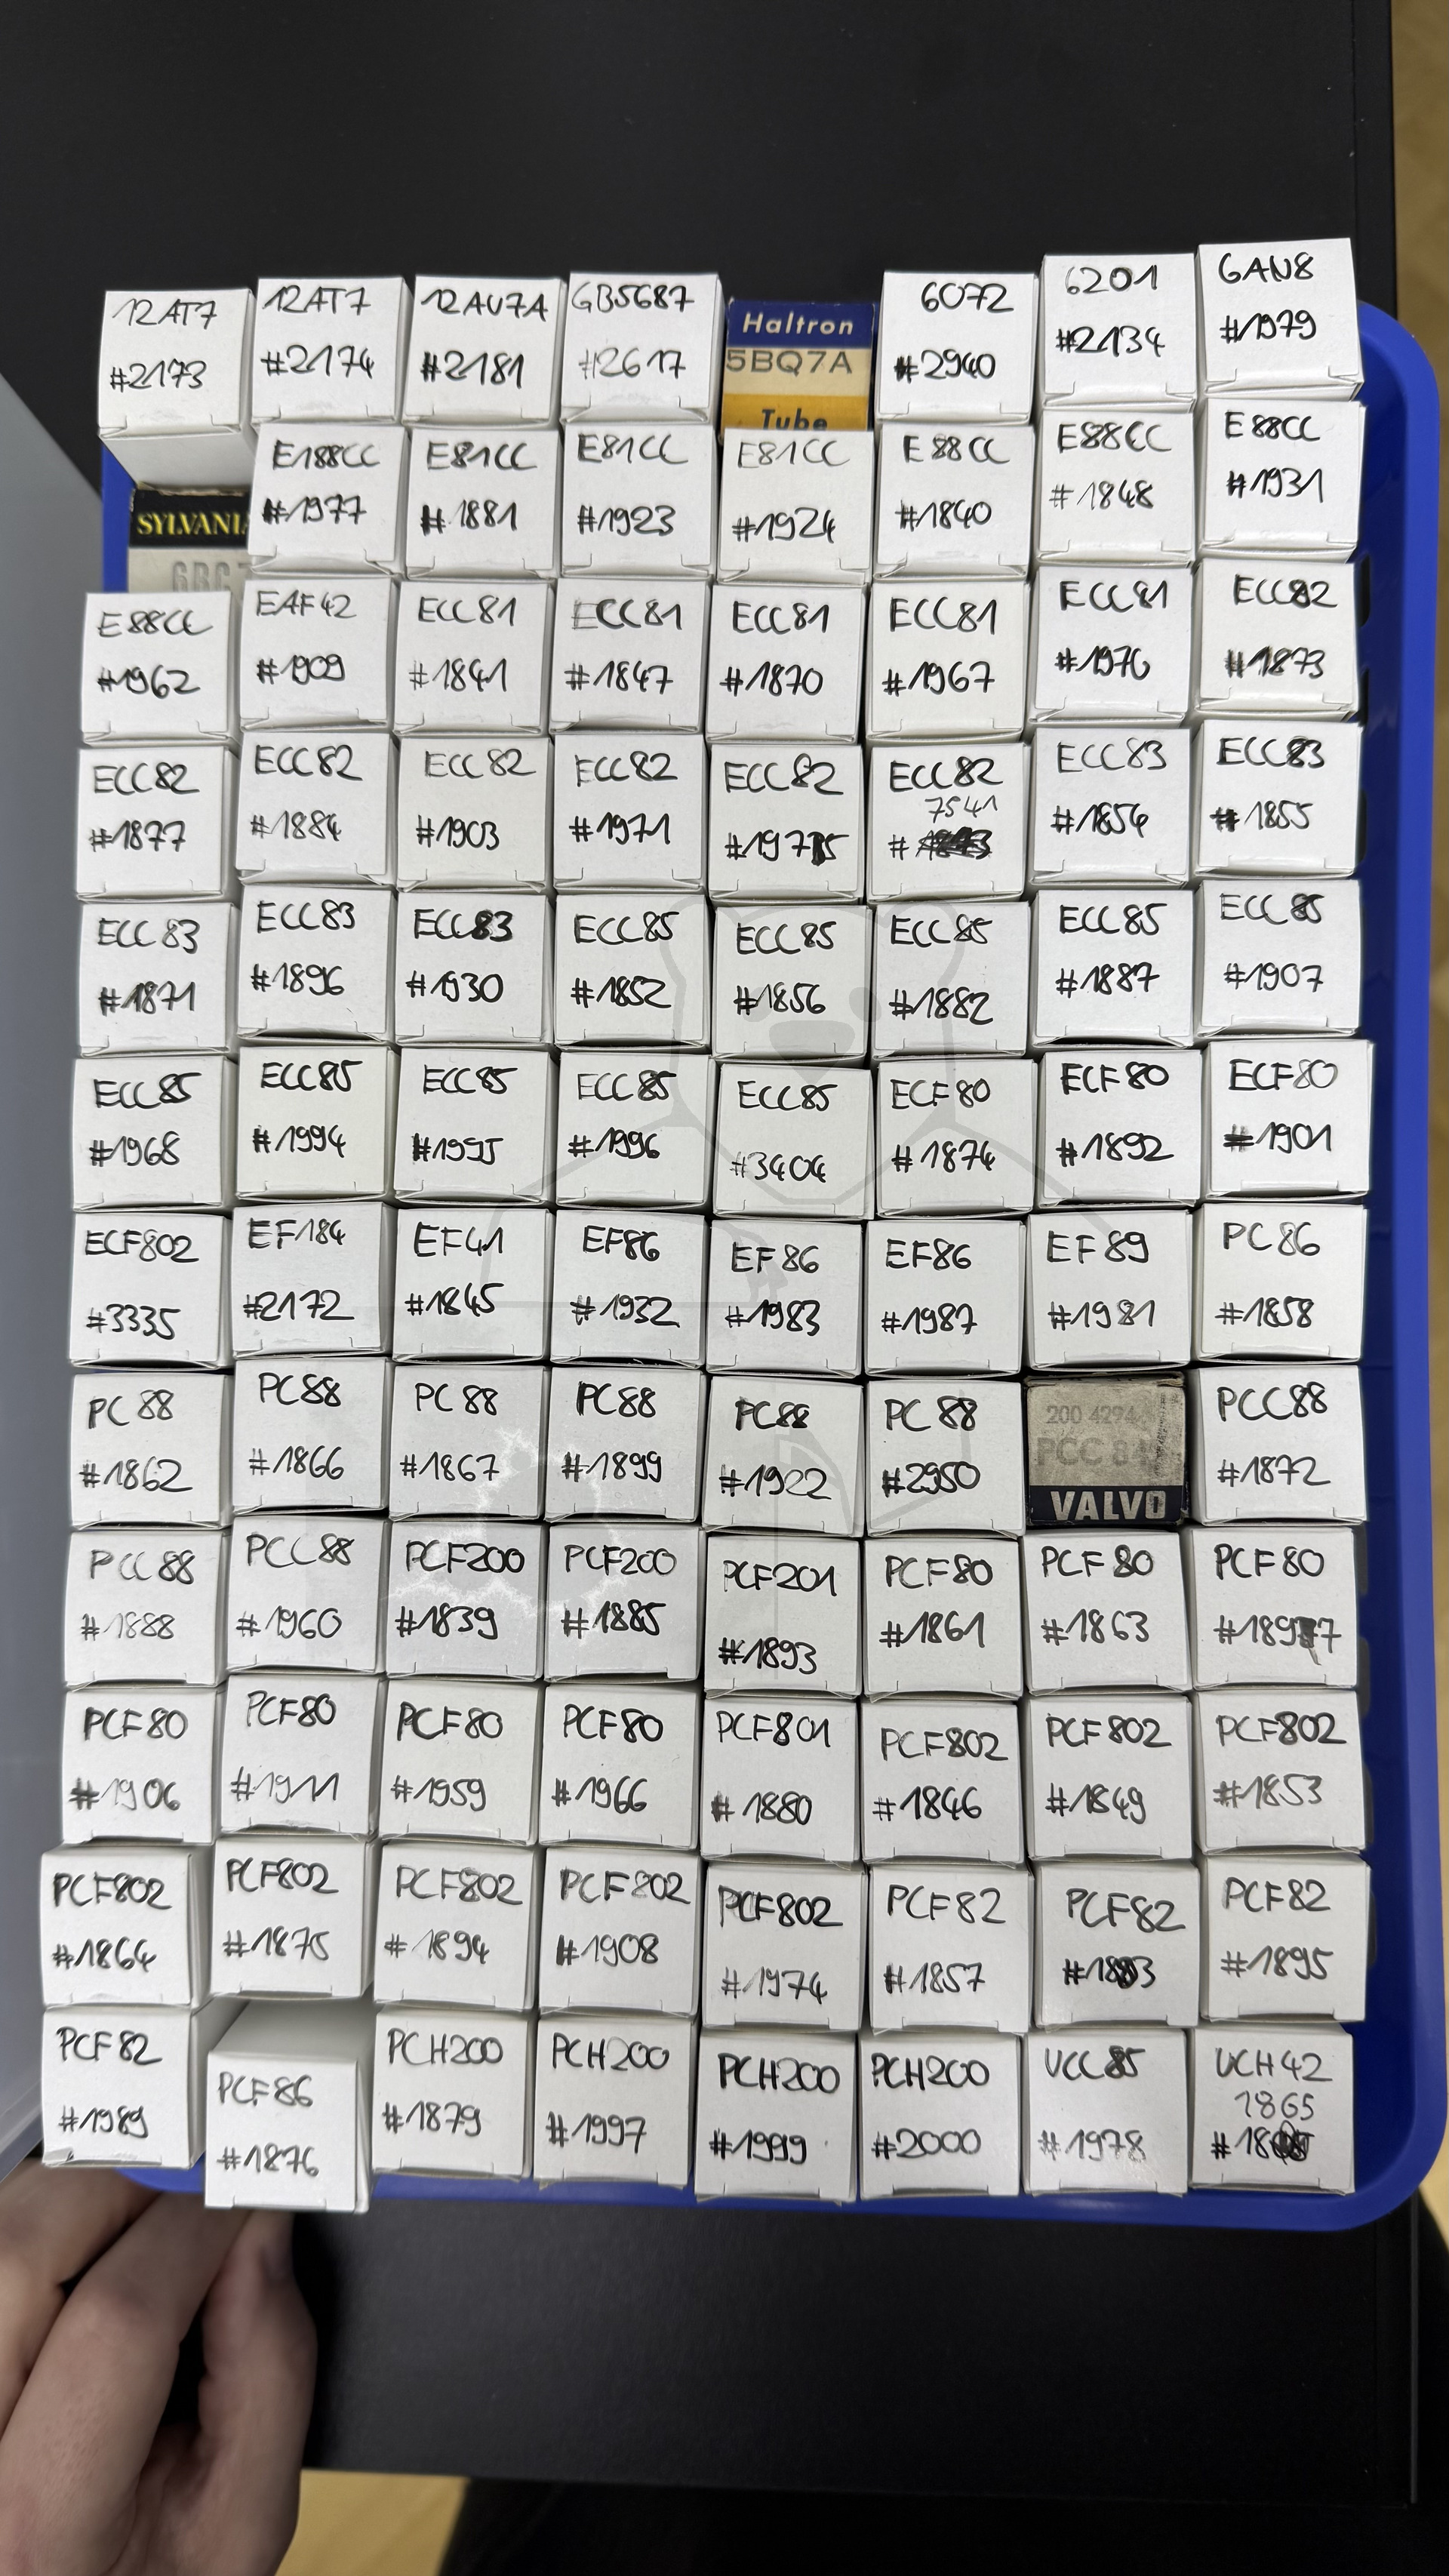 12AT7
#2173
12AT7
#2174
12AV7A
#2181
GB5687
#2617
Haltron
5BQ7A
Tube
6072
#2940
6201
#2134
6AN8
#1979
SYLVANIA
E188CC
#1977
E81CC
#1881
E81CC
#1923
E81CC
#1924
E88CC
#1840
E88CC
#1848
E88CC
#1931
E88CC
#1962
EAF42
#1909
ECC81
#1841
ECC81
#1847
ECC81
#1870
ECC81
#1967
ECC81
#1976
ECC82
#1873
ECC82
#1877
ECC82
#1884
ECC82
#1903
ECC82
#1971
ECC82
#1975
ECC82
7541
#
ECC83
#1854
ECC83
#1855
ECC83
#1871
ECC83
#1896
ECC83
#1930
ECC85
#1852
ECC85
#1856
ECC85
#1882
ECC85
#1887
ECC85
#1907
ECC85
#1968
ECC85
#1994
ECC85
#1995
ECC85
#1996
ECC85
#3404
ECF80
#1874
ECF80
#1892
ECF80
#1901
ECF802
#3335
EF184
#2172
EF41
#1845
EF86
#1932
EF86
#1983
EF86
#1987
EF89
#1981
PC86
#1858
PC88
#1862
PC88
#1866
PC88
#1867
PC88
#1899
PC88
#1922
PC88
#2950
200 4294
PCC 84
VALVO
PCC88
#1872
PCC88
#1888
PCC88
#1960
PCF200
#1839
PCF200
#1885
PCF201
#1893
PCF80
#1861
PCF80
#1863
PCF80
#1897
PCF80
#1906
PCF80
#1911
PCF80
#1959
PCF80
#1966
PCF801
#1880
PCF802
#1846
PCF802
#1849
PCF802
#1853
PCF802
#1864
PCF802
#1875
PCF802
#1894
PCF802
#1908
PCF802
#1974
PCF82
#1857
PCF82
#1883
PCF82
#1895
PCF82
#1989
PCF86
#1876
PCH200
#1879
PCH200
#1997
PCH200
#1999
PCH200
#2000
UCC85
#1978
UCH42
1865